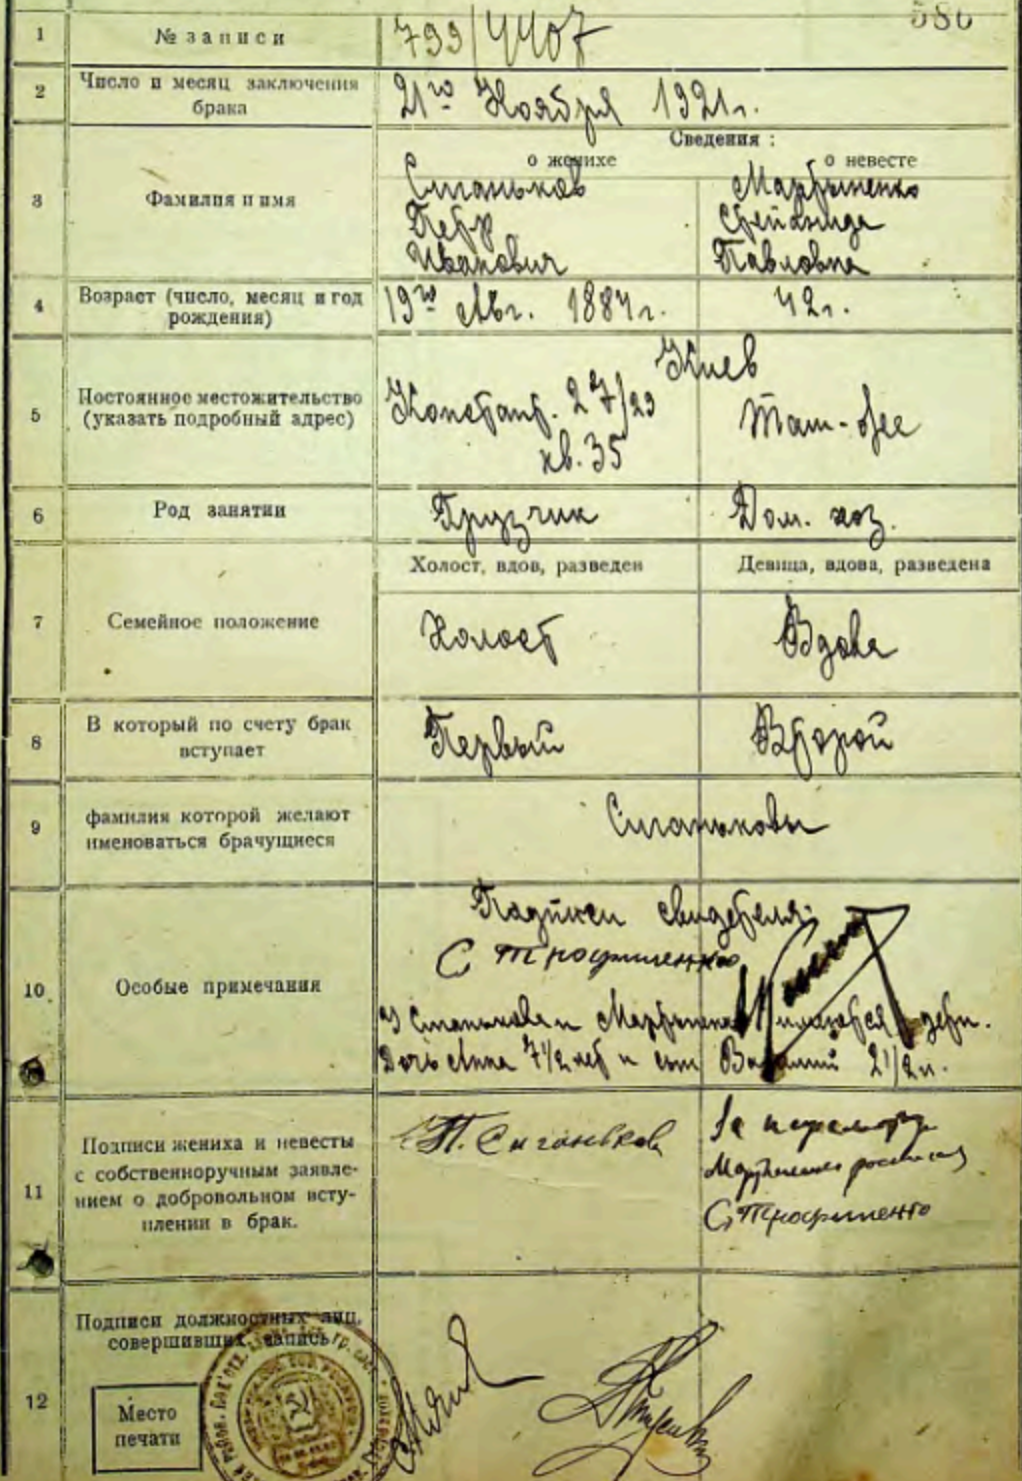 586
1
№ записи
793/4407
2
Число и месяц заключения
брака
21го Ноября 1921г.
3
Фамилия и имя
Сведения :
о женихе
о невесте
Сиганьков
Петр
Иванович
Мартыненко
Степанида
Павловна
4
Возраст (число, месяц и год
рождения)
19го Авг. 1887г.
42г.
5
Постоянное местожительство
(указать подробный адрес)
Киев
Констант. 27/29
кв. 35
Там-же
6
Род занятии
Грузчик
Дом. хоз.
7
Семейное положение
Холост, вдов, разведен
Девица, вдова, разведена
Холост
Вдова
8
В который по счету брак
вступает
Первый
Второй
9
фамилия которой желают
именоваться брачущиеся
Сиганьковы
10
Особые примечания
Подписи свидетеля:
С Трофименко
Сиганькова и Мартыненко имеются дети.
Дочь Анна 7 1/2 лет и сын Василий 2 1/2 г.
11
Подписи жениха и невесты
с собственноручным заявле-
нием о добровольном всту-
плении в брак.
П. Сиганьков
За неграмотн
Мартыненко
С Трофименко
12
Подписи должностных лиц,
совершивших запись
Место
печати